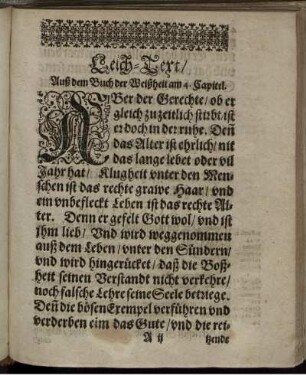 Leich-Text/
Auß dem Buch der Weißheit am 4. Capitel.
ABer der Gerechte/ ob er
gleich zu zeitlich stirbt/ ist
er doch in der ruhe. Deñ
das Alter ist ehrlich/ nit
das lange lebet oder vil
Jahr hat/ Klugheit vnter den Men-
schen ist das rechte grawe Haar/ vnd
ein vnbefleckt Leben ist das rechte Al-
ter. Denn er gefelt Gott wol/ vnd ist
jhm lieb/ Vnd wird weggenommen
auß dem Leben/ vnter den Sündern/
vnd wird hingerücket/ daß die Boß-
heit seinen Verstandt nicht verkehre/
noch falsche Lehre seine Seele betriege.
Deñ die bösen Exempel verführen vnd
verderben eim das Gute/ vnd die rei-
A ij tzende